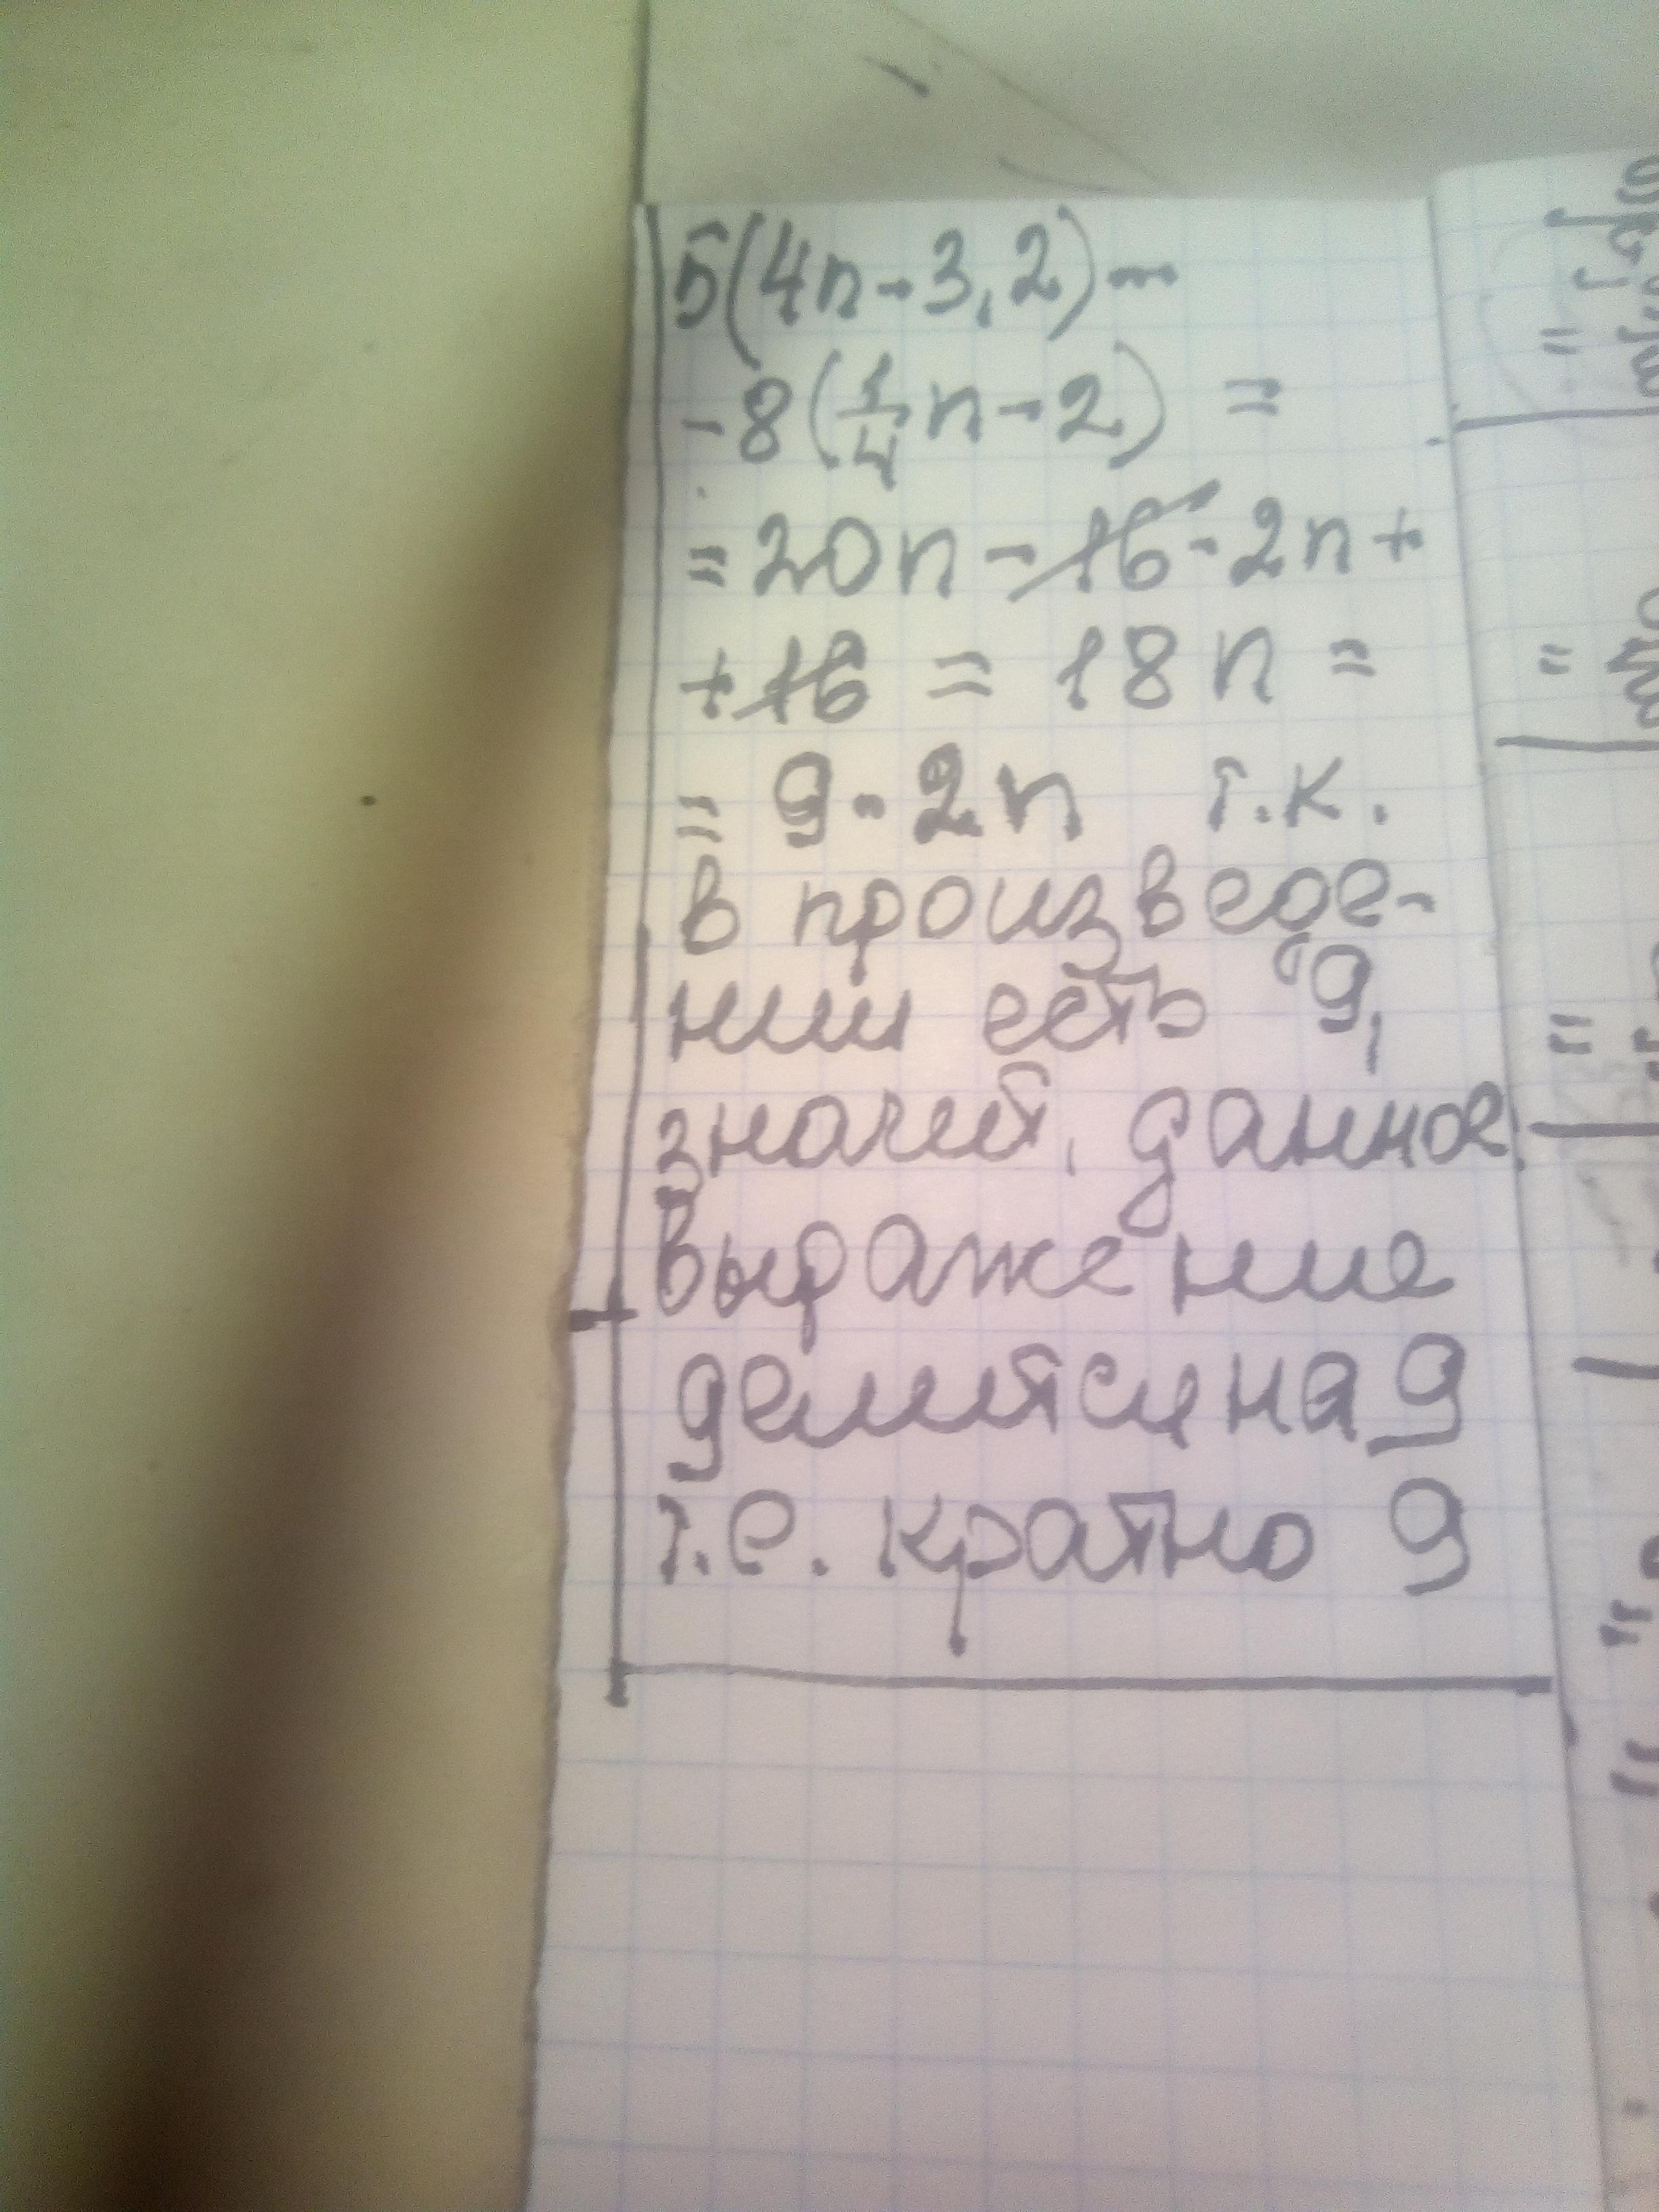 5(4n-3,2)-
-8(1/4n-2) =
=20n-16-2n+
+16 = 18n =
= 9·2n т.к.
в произведе-
нии есть 9,
значит, данное
выражение
делится на 9
т.е. кратно 9